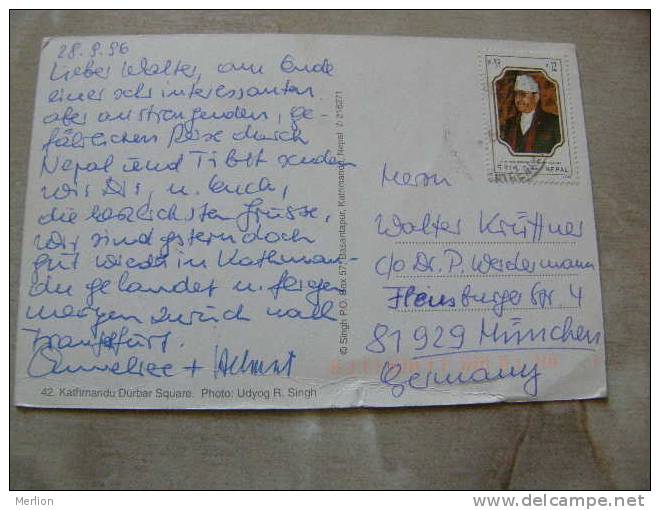 28.9.96
Lieber Walter, am Ende
einer sehr interessanten
aber anstrengenden, ge-
fährlichen Reise durch
Nepal und Tibet senden
wir Dir, u. Euch,
die herzlichsten Grüsse,
wir sind gestern doch
gut wieder in Kathman-
du gelandet u. fliegen
morgen zurück nach
Frankfurt.
Annelise + Helmut
42. Kathmandu Durbar Square. Photo: Udyog R. Singh
© Singh P.O. Box 57, Basantapur, Kathmandu, Nepal
NEPAL
Herrn
Walter Krüttner
c/o Dr. P. Werdermann
Flensburger Str. 4
81929 München
Germany
Merlion
www.delcampe.net